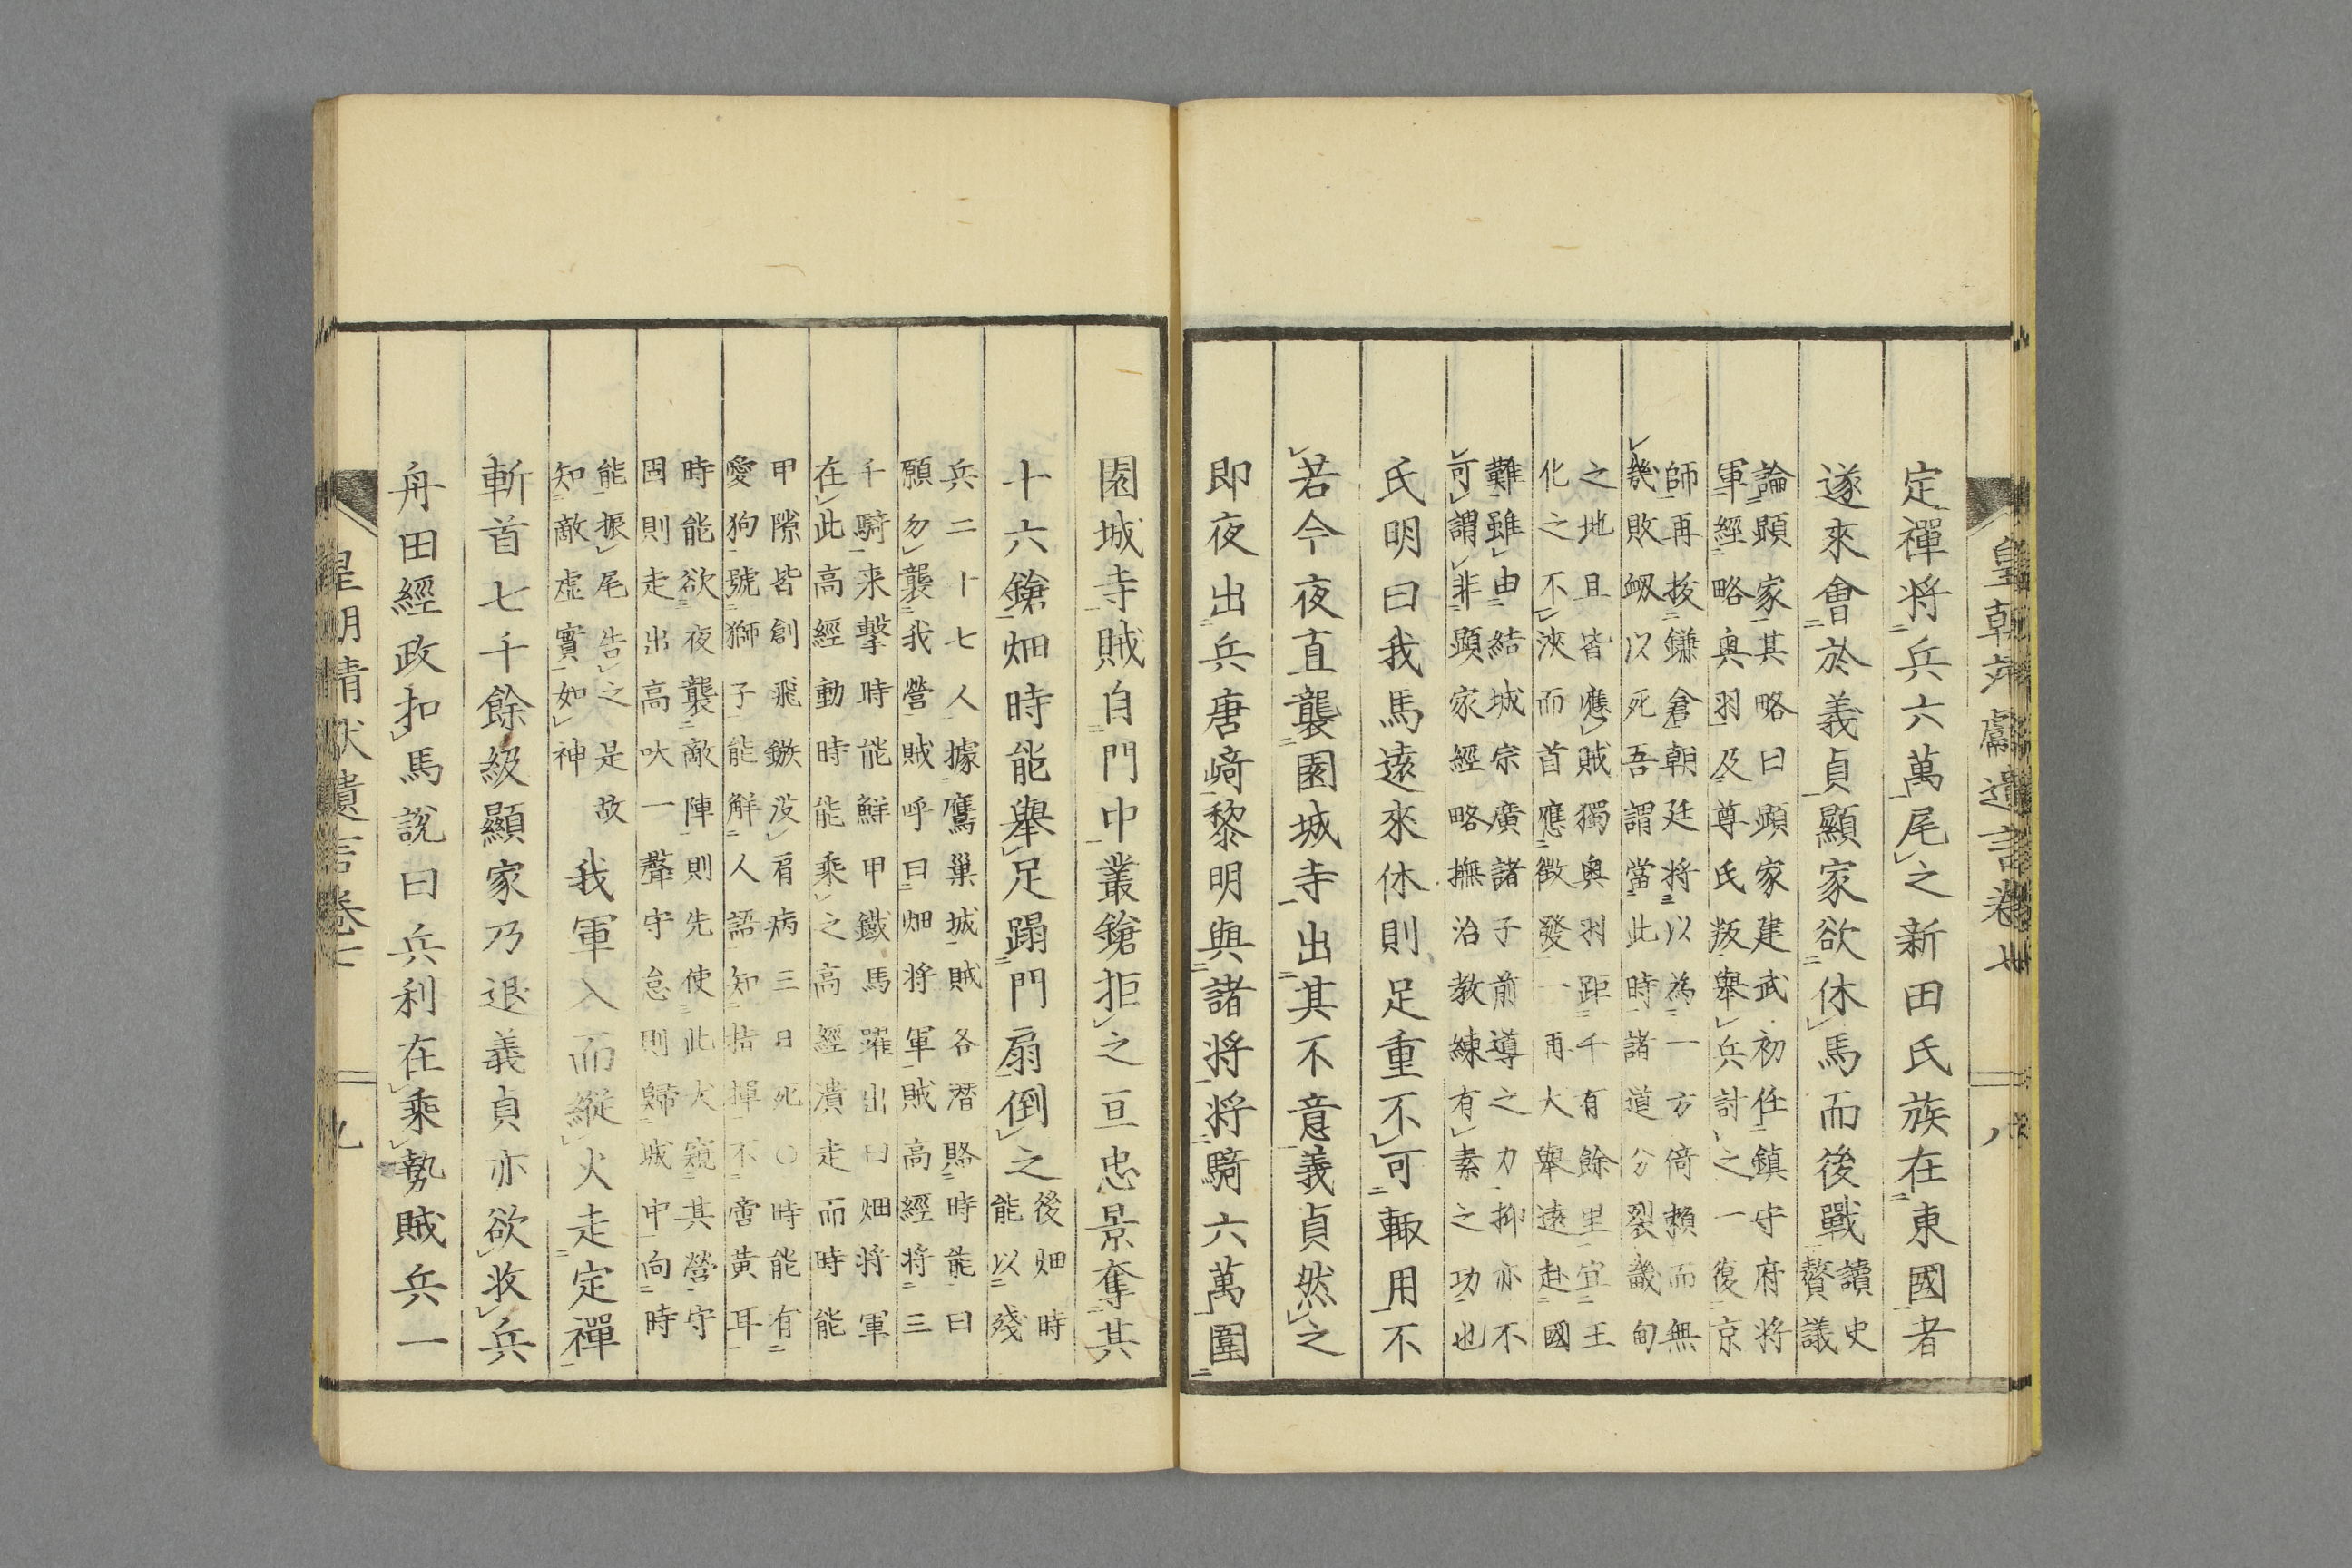 定禪将兵六萬尾之新田氏族在東國者
遂來會於義貞顯家欲休馬而後戰讀史
贅議
論顯家其略曰顯家建武初任鎮守府将
軍經略奥羽及尊氏叛舉兵討之一復京
師再拔鎌倉朝廷将以為一方倚賴而無
幾敗衂以死吾謂當此時諸道分裂畿甸
之地且皆應賊獨奥羽距千有餘里宜王
化之不浹而首應徴發一再大舉遠赴國
難雖由結城宗廣諸子前導之力抑亦不
可謂非顕家經略撫治教練有素之功也
氏明曰我馬遠來休則足重不可輙用不
若今夜直襲園城寺出其不意義貞然之
即夜出兵唐﨑黎明與諸将将騎六萬圍
園城寺賊自門中叢鎗拒之亘忠景奪其
十六鎗畑時能舉足蹋門扇倒之後畑時
能以殘
兵二十七人據鷹巣城賊各潜賂時能曰
願勿襲我營賊呼曰畑将軍賊高經将三
千騎来擊時能鮮甲鐵馬躍出曰畑将軍
在此高經動時能乘之高經潰走而時能
甲隙皆創飛鏃没肩病三日死〇時能有
愛狗號獅子能解人語知指揮不啻黄耳
時能欲夜襲敵陣則先使此犬窺其營守
固則走出高吠一聲守怠則歸城中向時
能振尾告之是故
知敵虚實如神
我軍入而縱火走定禪
斬首七千餘級顯家乃退義貞亦欲收兵
舟田經政扣馬說曰兵利在乘勢賊兵一